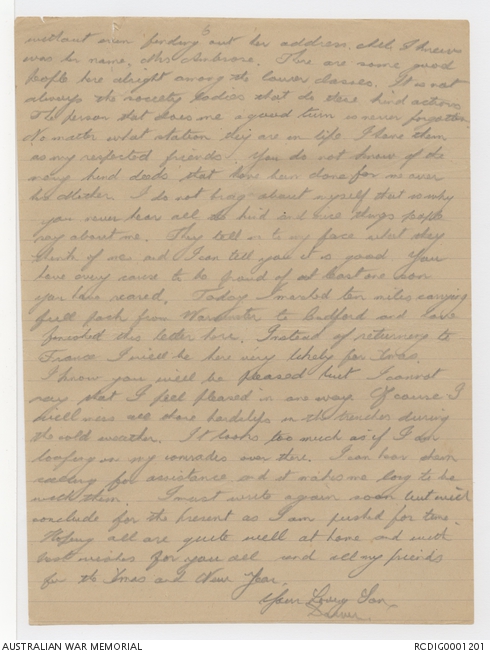 5
without even finding out her address. All I knew
was her name, Mrs Ambrose. There are some good
people here alright among the lower classes. It is not
always the society ladies that do these kind actions
The person that does me a good turn is never forgotten
No matter what station they are in life I have them
as my respected friends. You do not know of the
many kind deeds that have been done for me over
here Mother. I do not brag about myself that is why
you never hear all the kind and nice things people
say about me. They tell me to my face what they
think of me and I can tell you it is good. You
have every cause to be proud of at least one son
you have reared. Today I marched ten miles carrying
full pack from Warminster to Codford and have
finished this letter here. Instead of returning to
France I will be here very likely for Xmas.
I know you will be pleased but I cannot
say that I feel pleased in one way. Of course I
will miss all the hardships in the trenches during
the cold weather. It looks too much as if I am
loafing on my comrades over there. I can hear them
calling for assistance and it makes me long to be
with them. I must write again soon but will
conclude for the present as I am pushed for time.
Hoping all are quite well at home and with
best wishes for you all and all my friends
for the Xmas and New Year.
Your Loving Son,
AUSTRALIAN WAR MEMORIAL
RCDIG0001201